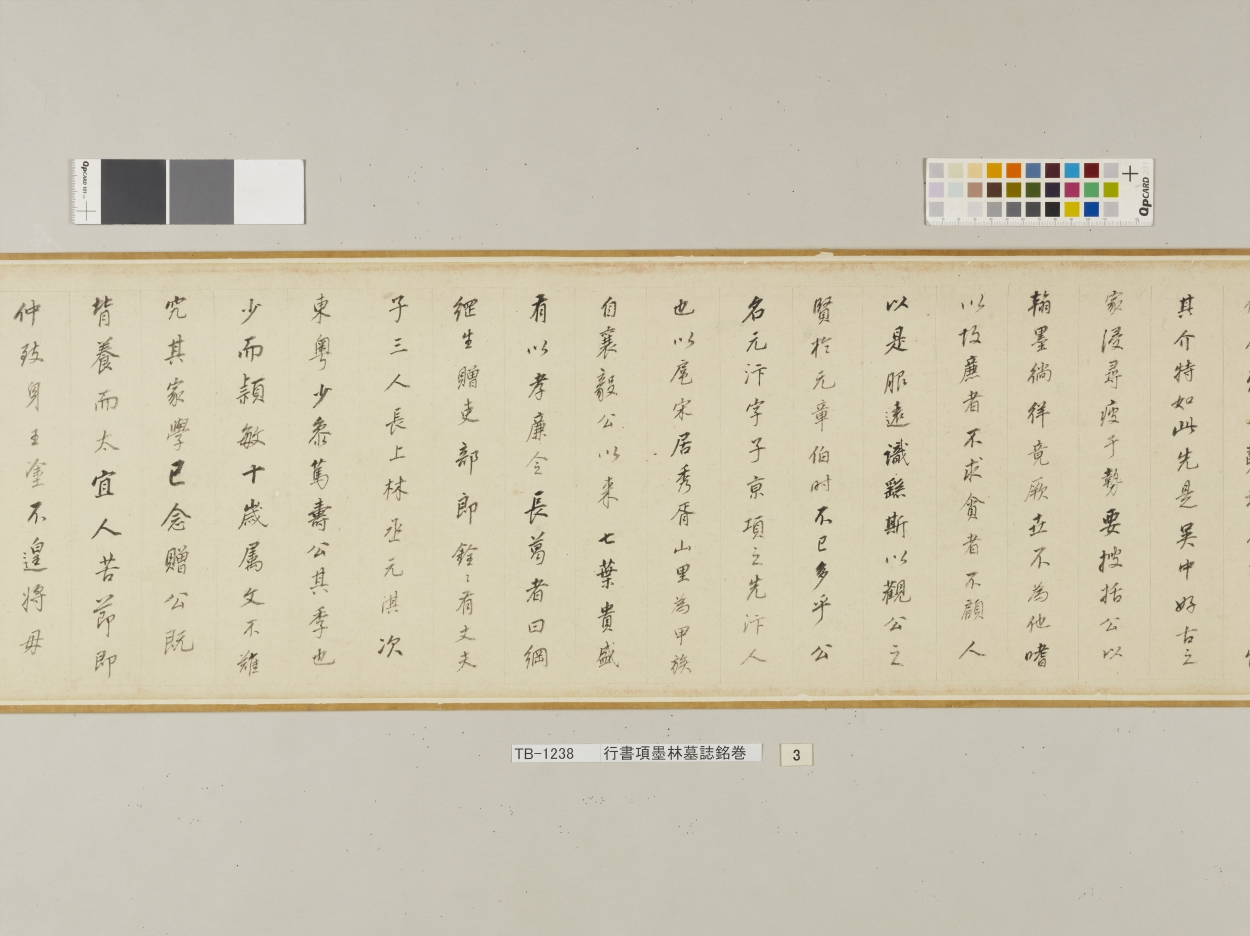 其介特如此先是吳中好古之
家浸尋疲于勢要披括公以
翰墨徜徉竟厥世不為他嗜
以故廉者不求貪者不顧人
以是服遠識繇斯以觀公之
賢於元章伯時不已多乎公
名元汴字子京項之先汴人
也以扈宋居秀胥山里為甲族
自襄毅公以来七葉貴盛
有以孝廉令長葛者曰綱
綱生贈吏部郎銓〻有丈夫
子三人長上林丞元淇次
東粵少參篤壽公其季也
少而穎敏十歲属文不難
究其家學已念贈公既
背養而太宜人苦節即
仲致身王塗不遑將母
TB-1238 行書項墨林墓誌銘巻 3
QpCARD
QpCARD